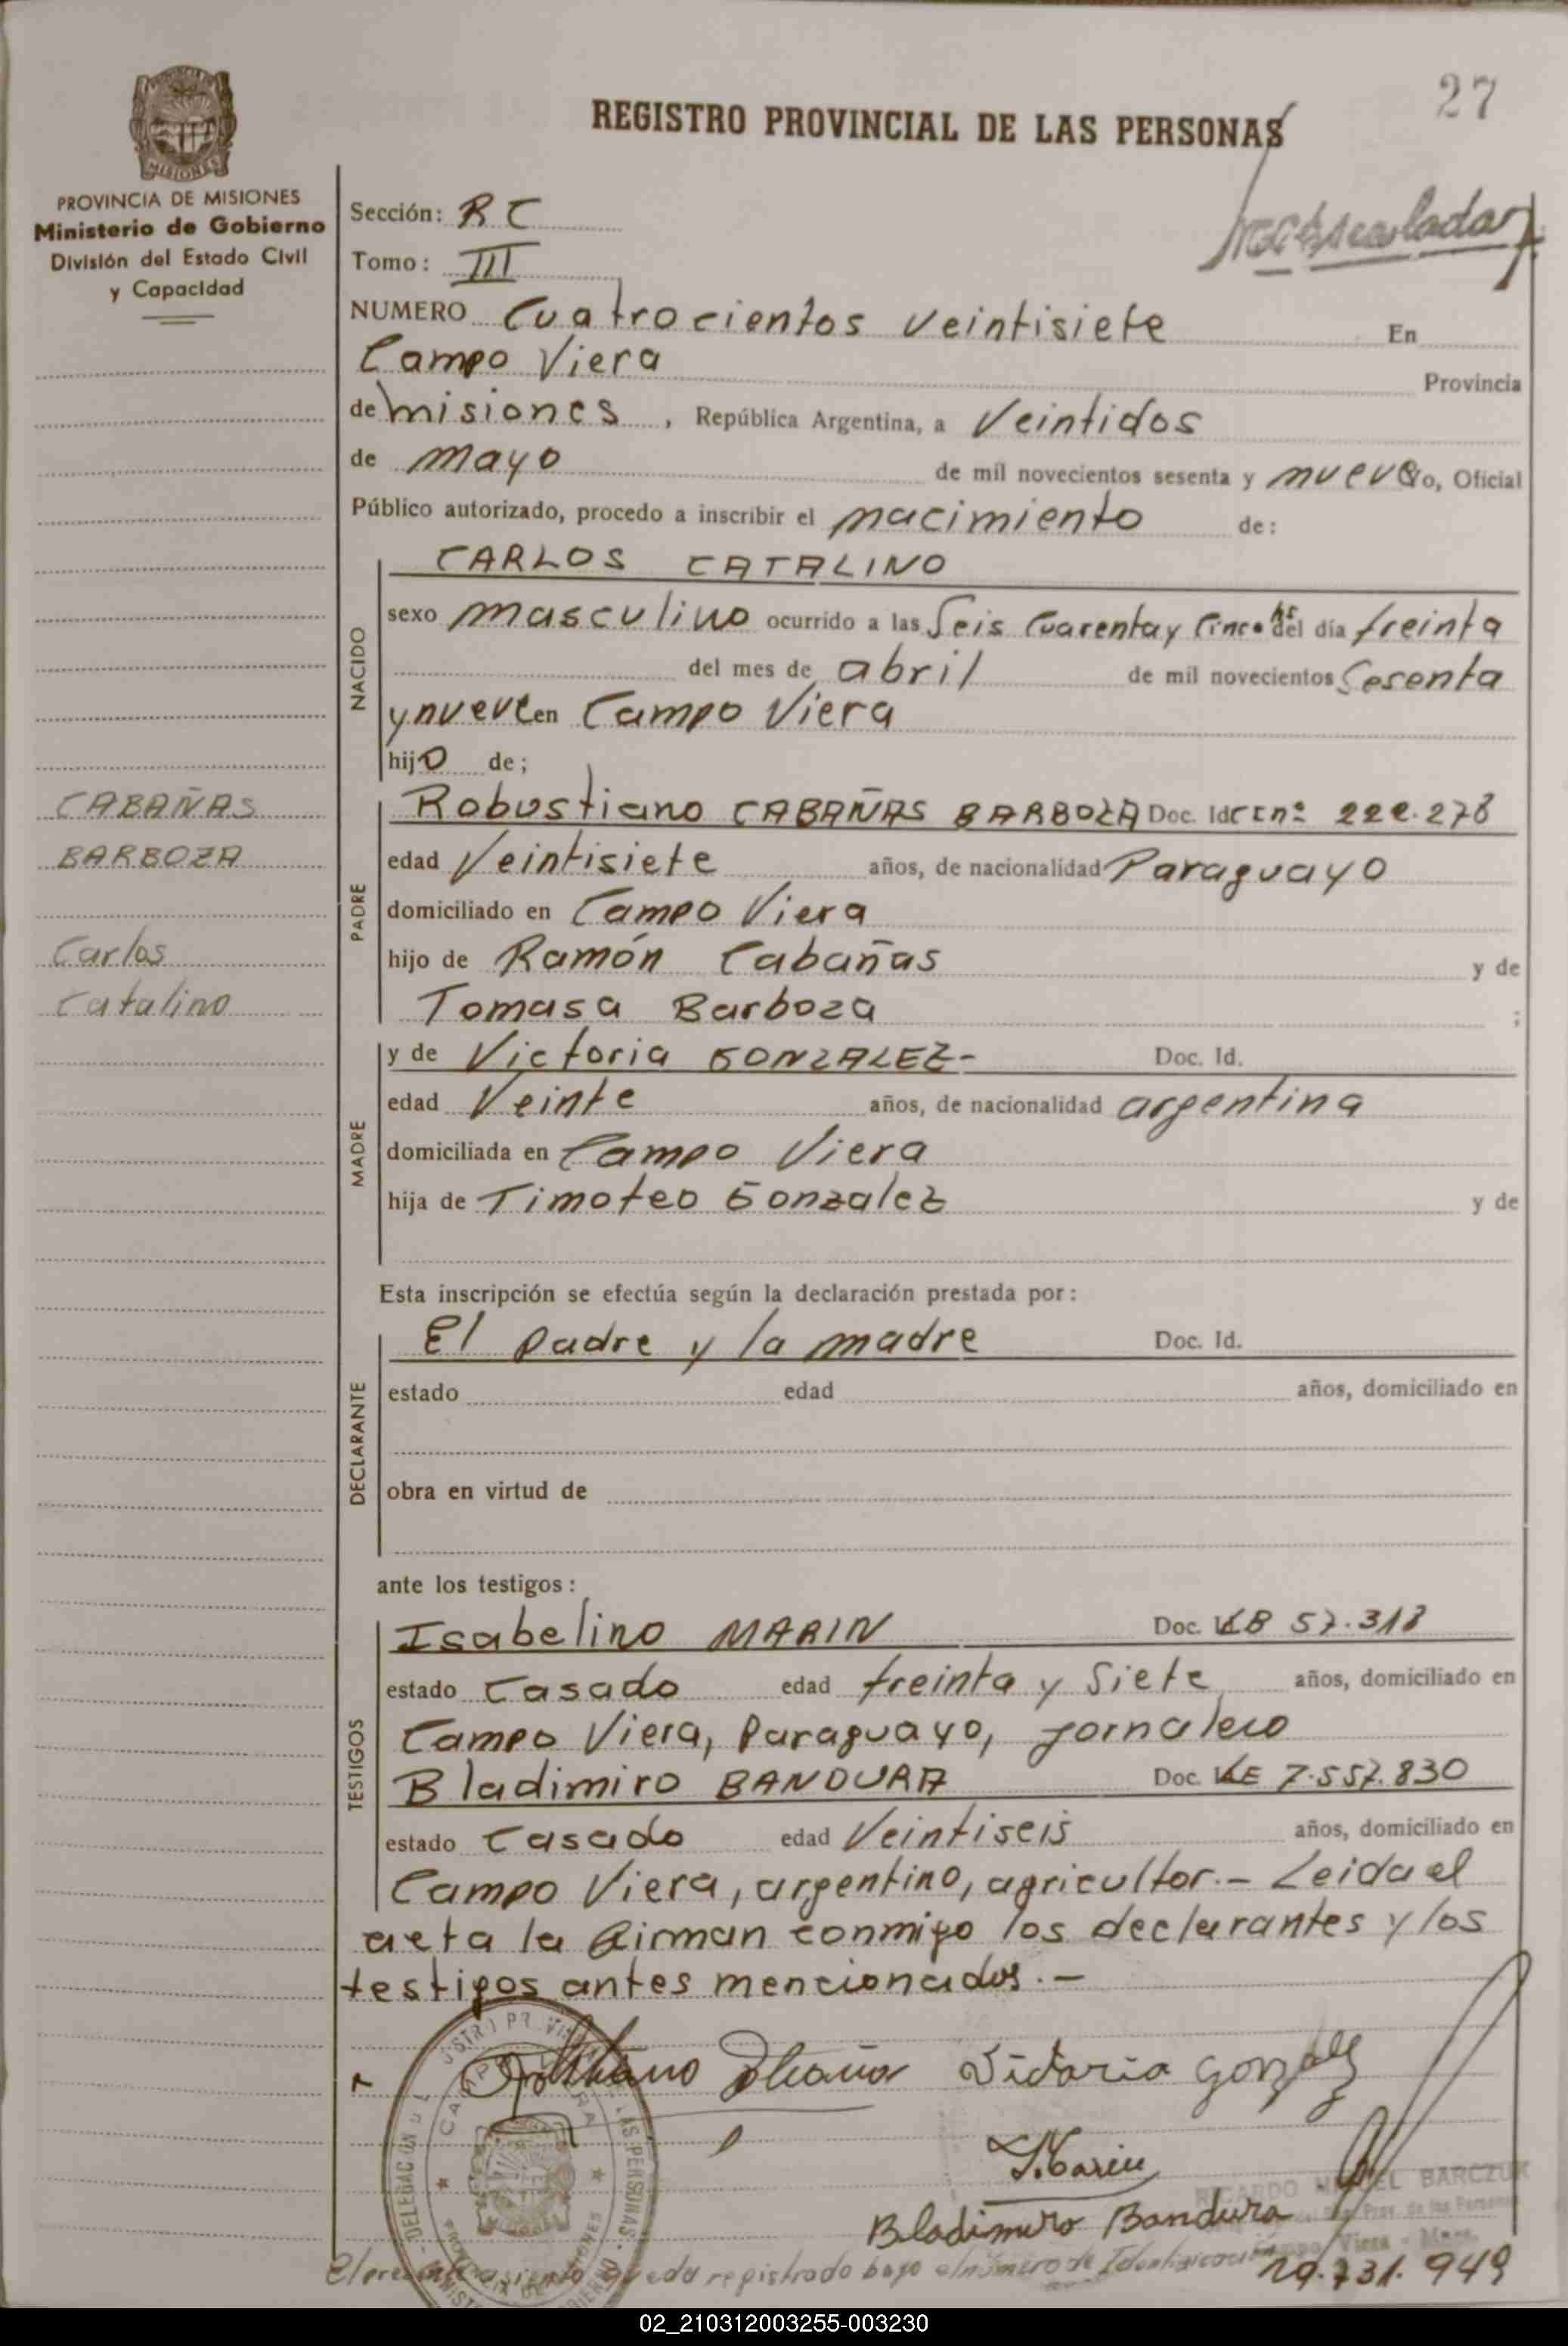 27
REGISTRO PROVINCIAL DE LAS PERSONAS
MISIONES
PROVINCIA DE MISIONES
Ministerio de Gobierno
División del Estado Civil
y Capacidad
Sección: R C
Tomo: III
NUMERO Cuatrocientos veintisiete En
Campo Viera Provincia
de misiones, República Argentina, a Veintidos
de mayo de mil novecientos sesenta y nueve yo, Oficial
Público autorizado, procedo a inscribir el nacimiento de:
NACIDO
CARLOS CATALINO
sexo masculino ocurrido a las Seis Cuarenta y Cinco hs del día treinta
del mes de abril de mil novecientos Sesenta
y nueve en Campo Viera
hijo de;
CABAÑAS
BARBOZA
Carlos
Catalino
PADRE
Robustiano CABAÑAS BARBOZA Doc. Id CI nº 222.278
edad Veintisiete años, de nacionalidad Paraguayo
domiciliado en Campo Viera
hijo de Ramón Cabañas y de
Tomasa Barboza ;
MADRE
y de Victoria GONZALEZ- Doc. Id.
edad Veinte años, de nacionalidad argentina
domiciliada en Campo Viera
hija de Timoteo Gonzalez y de
Esta inscripción se efectúa según la declaración prestada por:
DECLARANTE
El padre y la madre Doc. Id.
estado edad años, domiciliado en
obra en virtud de
ante los testigos:
TESTIGOS
Isabelino MARIN Doc. 57.318
estado Casado edad treinta y Siete años, domiciliado en
Campo Viera, Paraguayo, jornalero
Bladimiro BANDURA Doc. LE 7.557.830
estado Casado edad Veintiseis años, domiciliado en
Campo Viera, argentino, agricultor.- Leida el
acta la firman conmigo los declarantes y los
testigos antes mencionados.-
Victoria Gonzalez
Marin
Bladimiro Bandura
RICARDO BARCZUK
El presente asiento queda registrado bajo el número de Identificación 20.731.949
02_210312003255-003230